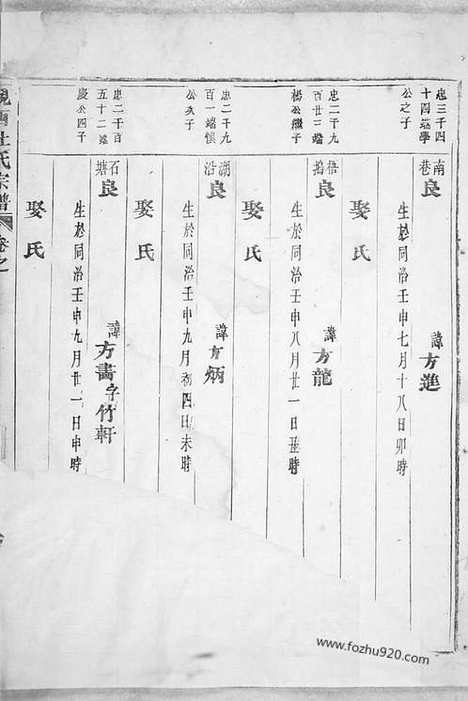 忠三千四
十四瑞學
公之子
南巷
良
諱方進
生於同治壬申七月十八日卯時
娶氏
忠二千九
百廿三瑞
楊公繼子
梧
良
諱方龍
生於同治壬申八月廿一日丑時
娶氏
忠二千九
百一瑞慎
公次子
湖沿
良
諱方炳
生於同治壬申九月初四日未時
娶氏
忠二千百
五十二瑞
慶公四子
石塘
良
諱方書字竹軒
生於同治壬申九月廿一日申時
娶氏
杜氏宗譜
卷之
www.fozhu920.com